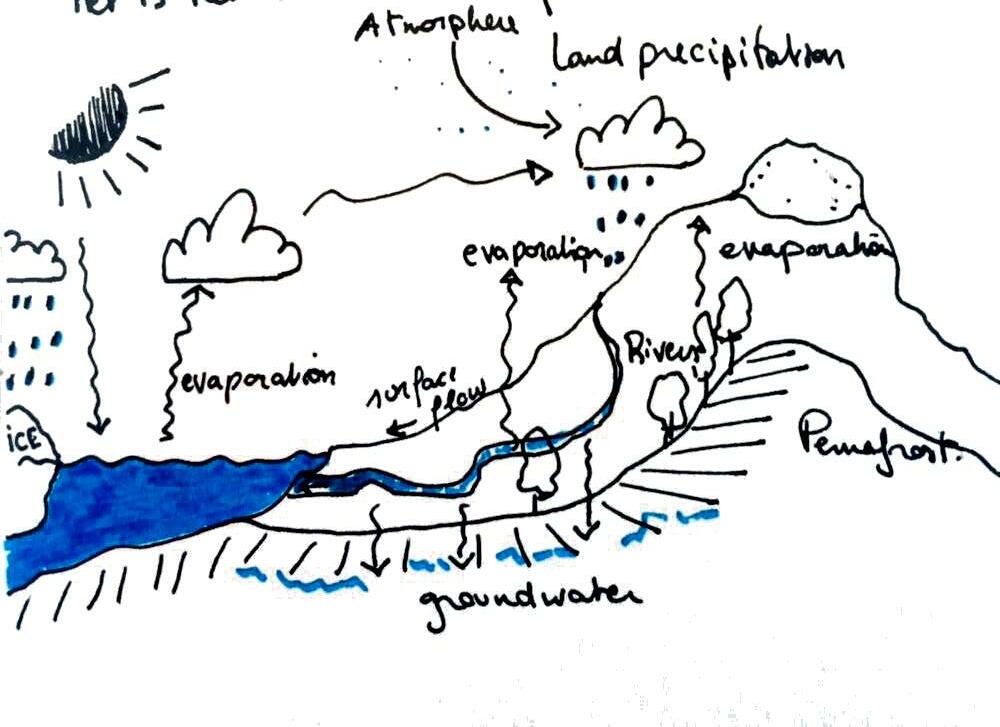 Atmosphere
Land precipitation
evaporation
evaporation
evaporation
surface
flow
Rivers
iCE
Permafrost.
groundwater